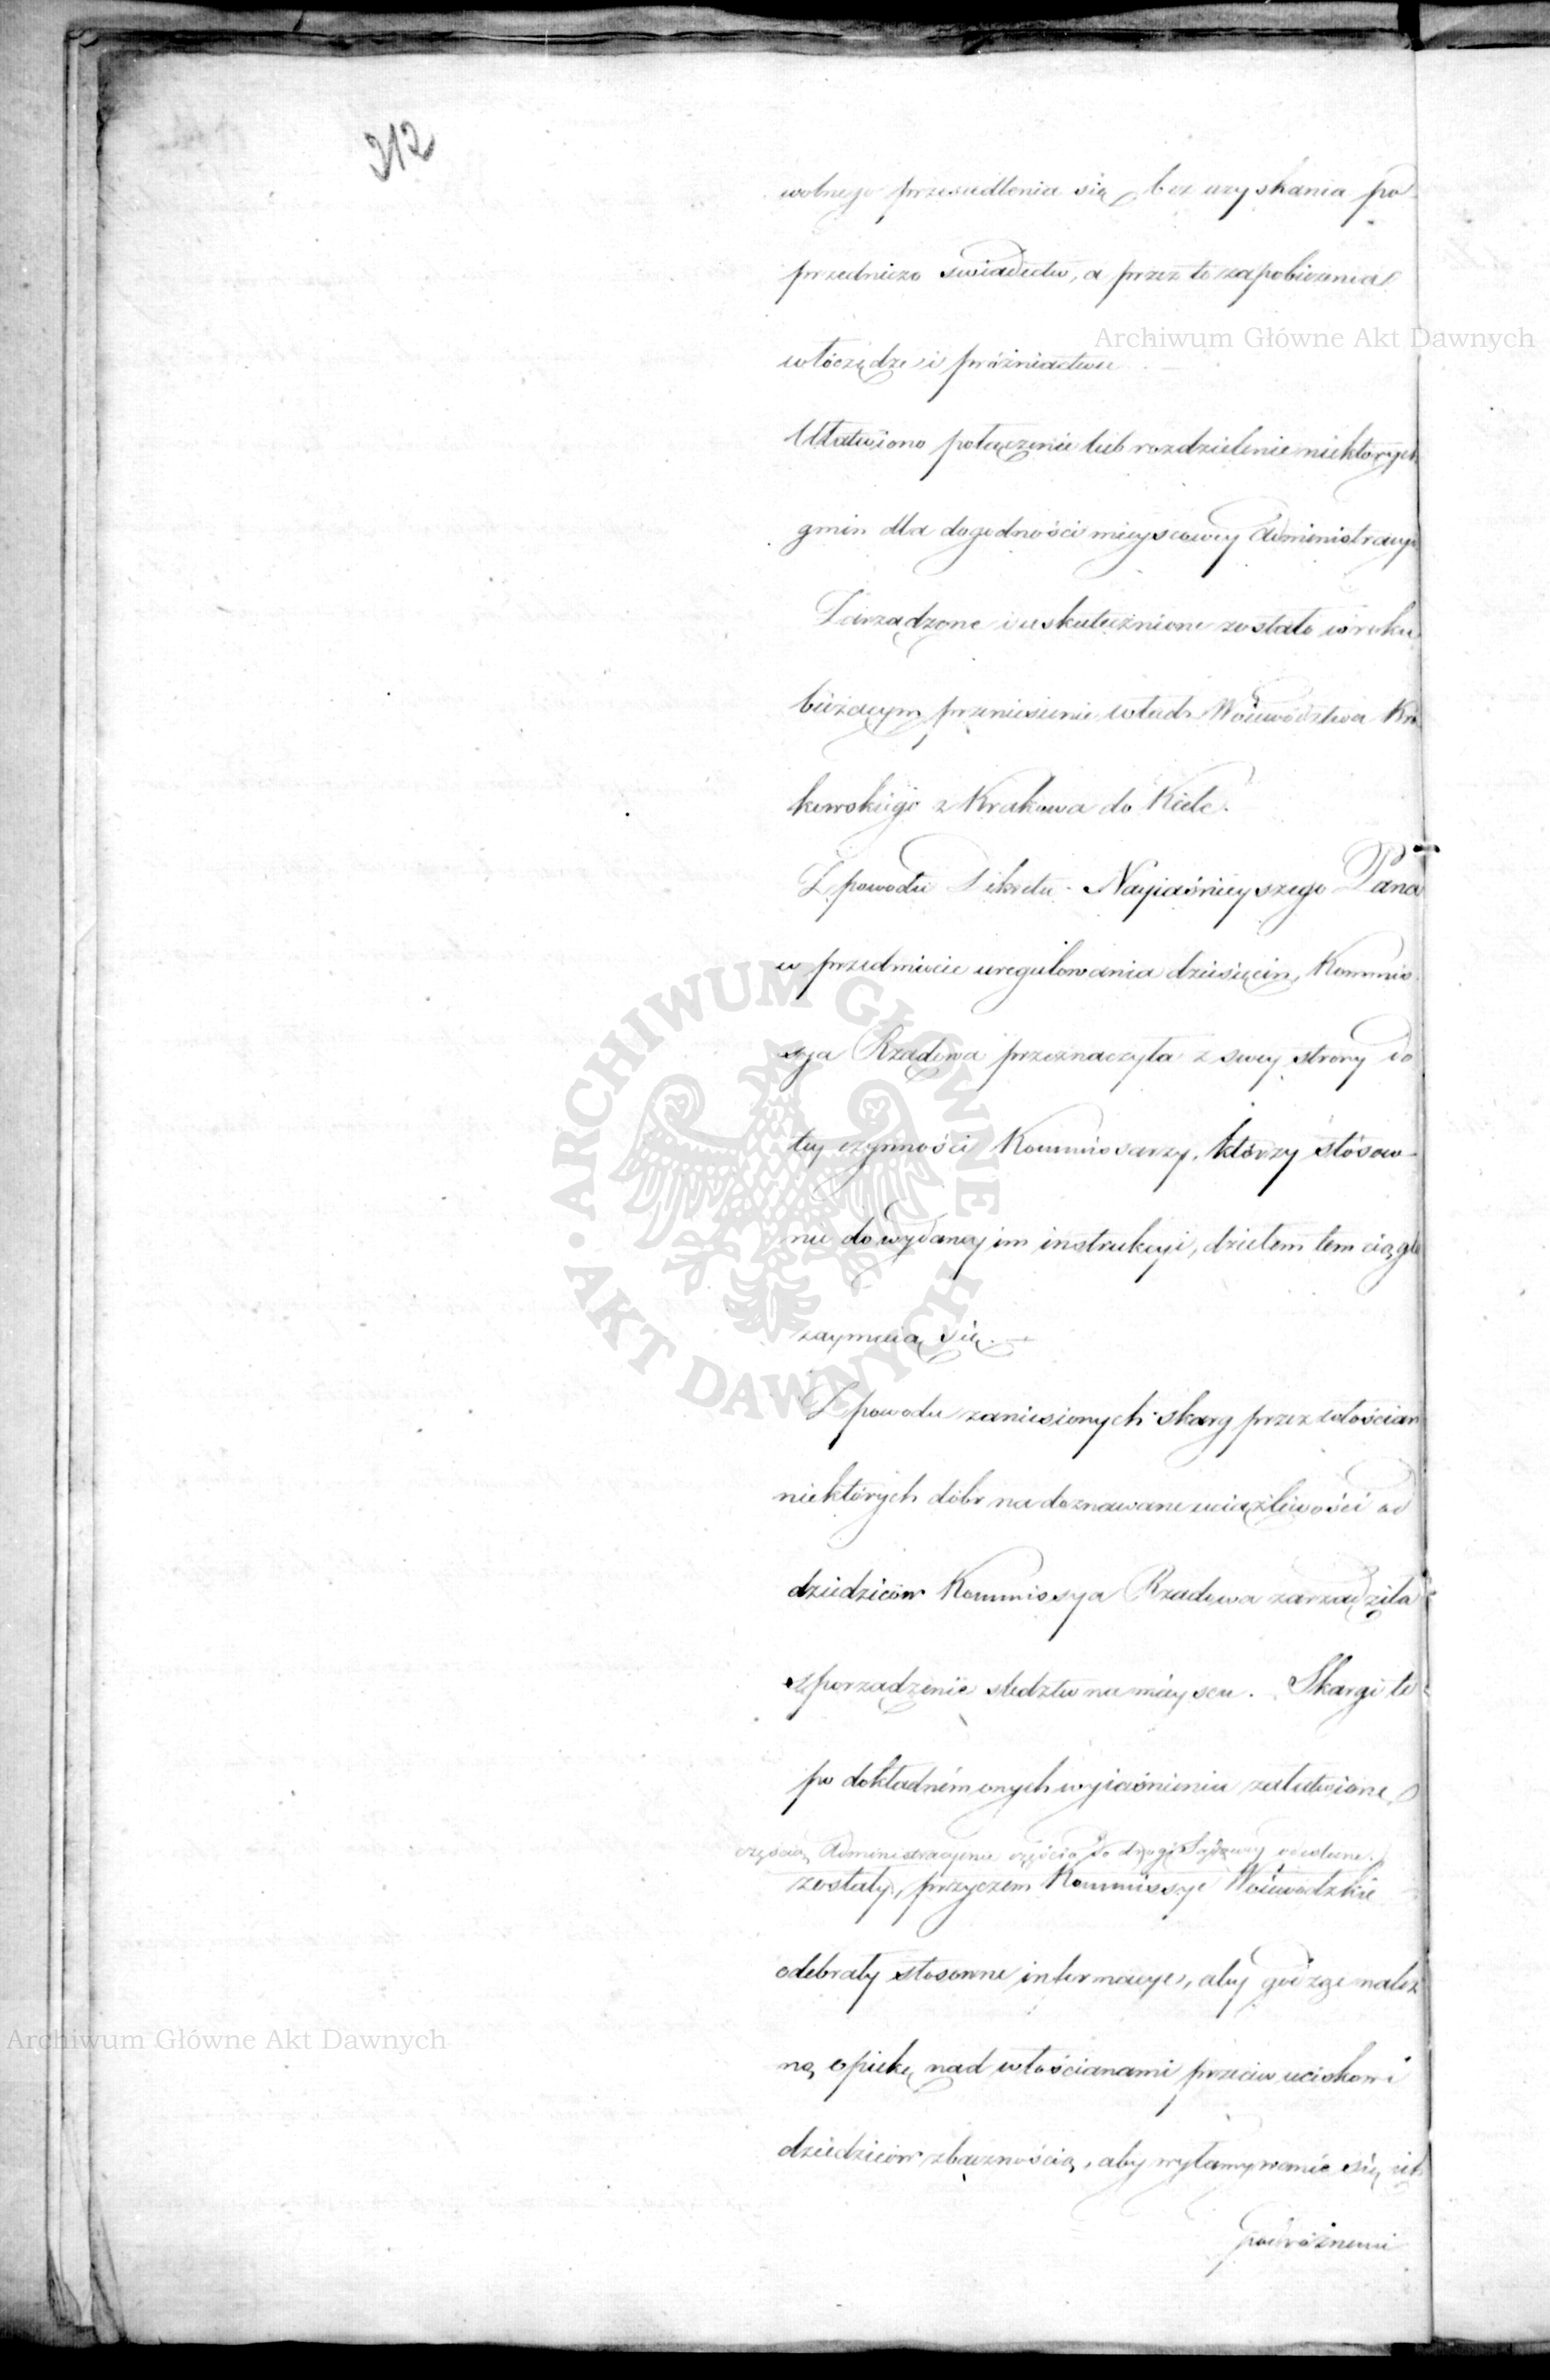 212
wolnego przesiedlenia się, bez uzyskania po-
przedniczo swiadectw, a przez to zapobieżenia
włóczędze i próżniactwu
Ułatwiono połączenie lub rozdzielenie niektórych
gmin dla dogodności mieyscowey Administracyi
Zarządzone i uskutecznione zostało w roku
bieżącym przeniesienie władz Woiewództwa Kra
kowskiego z Krakowa do Kielc.
Z powodu Dekretu Nayiaśnieyszego Pana
w przedmiocie uregulowania dziesięcin, Kommis-
sya Rządowa przeznaczyła z swey strony do
tey czynności Kommissarzy, którzy stósow-
nie do wydaney im instrukcyi, dziełem tem ciągle
zaymuią się.
Z powodu zaniesionych skarg przez włościan
niektórych dóbr na doznawane uciążliwości od
dziedziców Kommissya Rządowa zarządziła
sporządzenie sledztw na mieyscu. Skargi te
po dokładném onych wyiaśnieniu załatwione
częścią Administracyinie częścią do drogi Sądowey odesłane
zostały, przyczem Kommissye Woiewódzkie
odebrały stosowne informacye, aby
należ
ną opiekę nad włościanami przeciw uciskowi
dziedziców z bacznością, aby wyłamywanie się ich
podróżnemi
Archiwum Główne Akt Dawnych
Archiwum Główne Akt Dawnych
ARCHIWUM GŁÓWNE AKT DAWNYCH